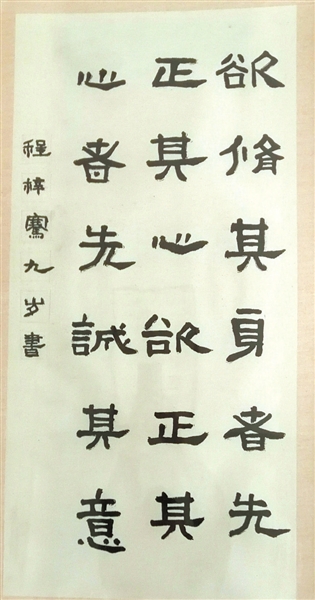 欲脩其身者先
正其心欲正其
心者先誠其意
程梓騫九岁書